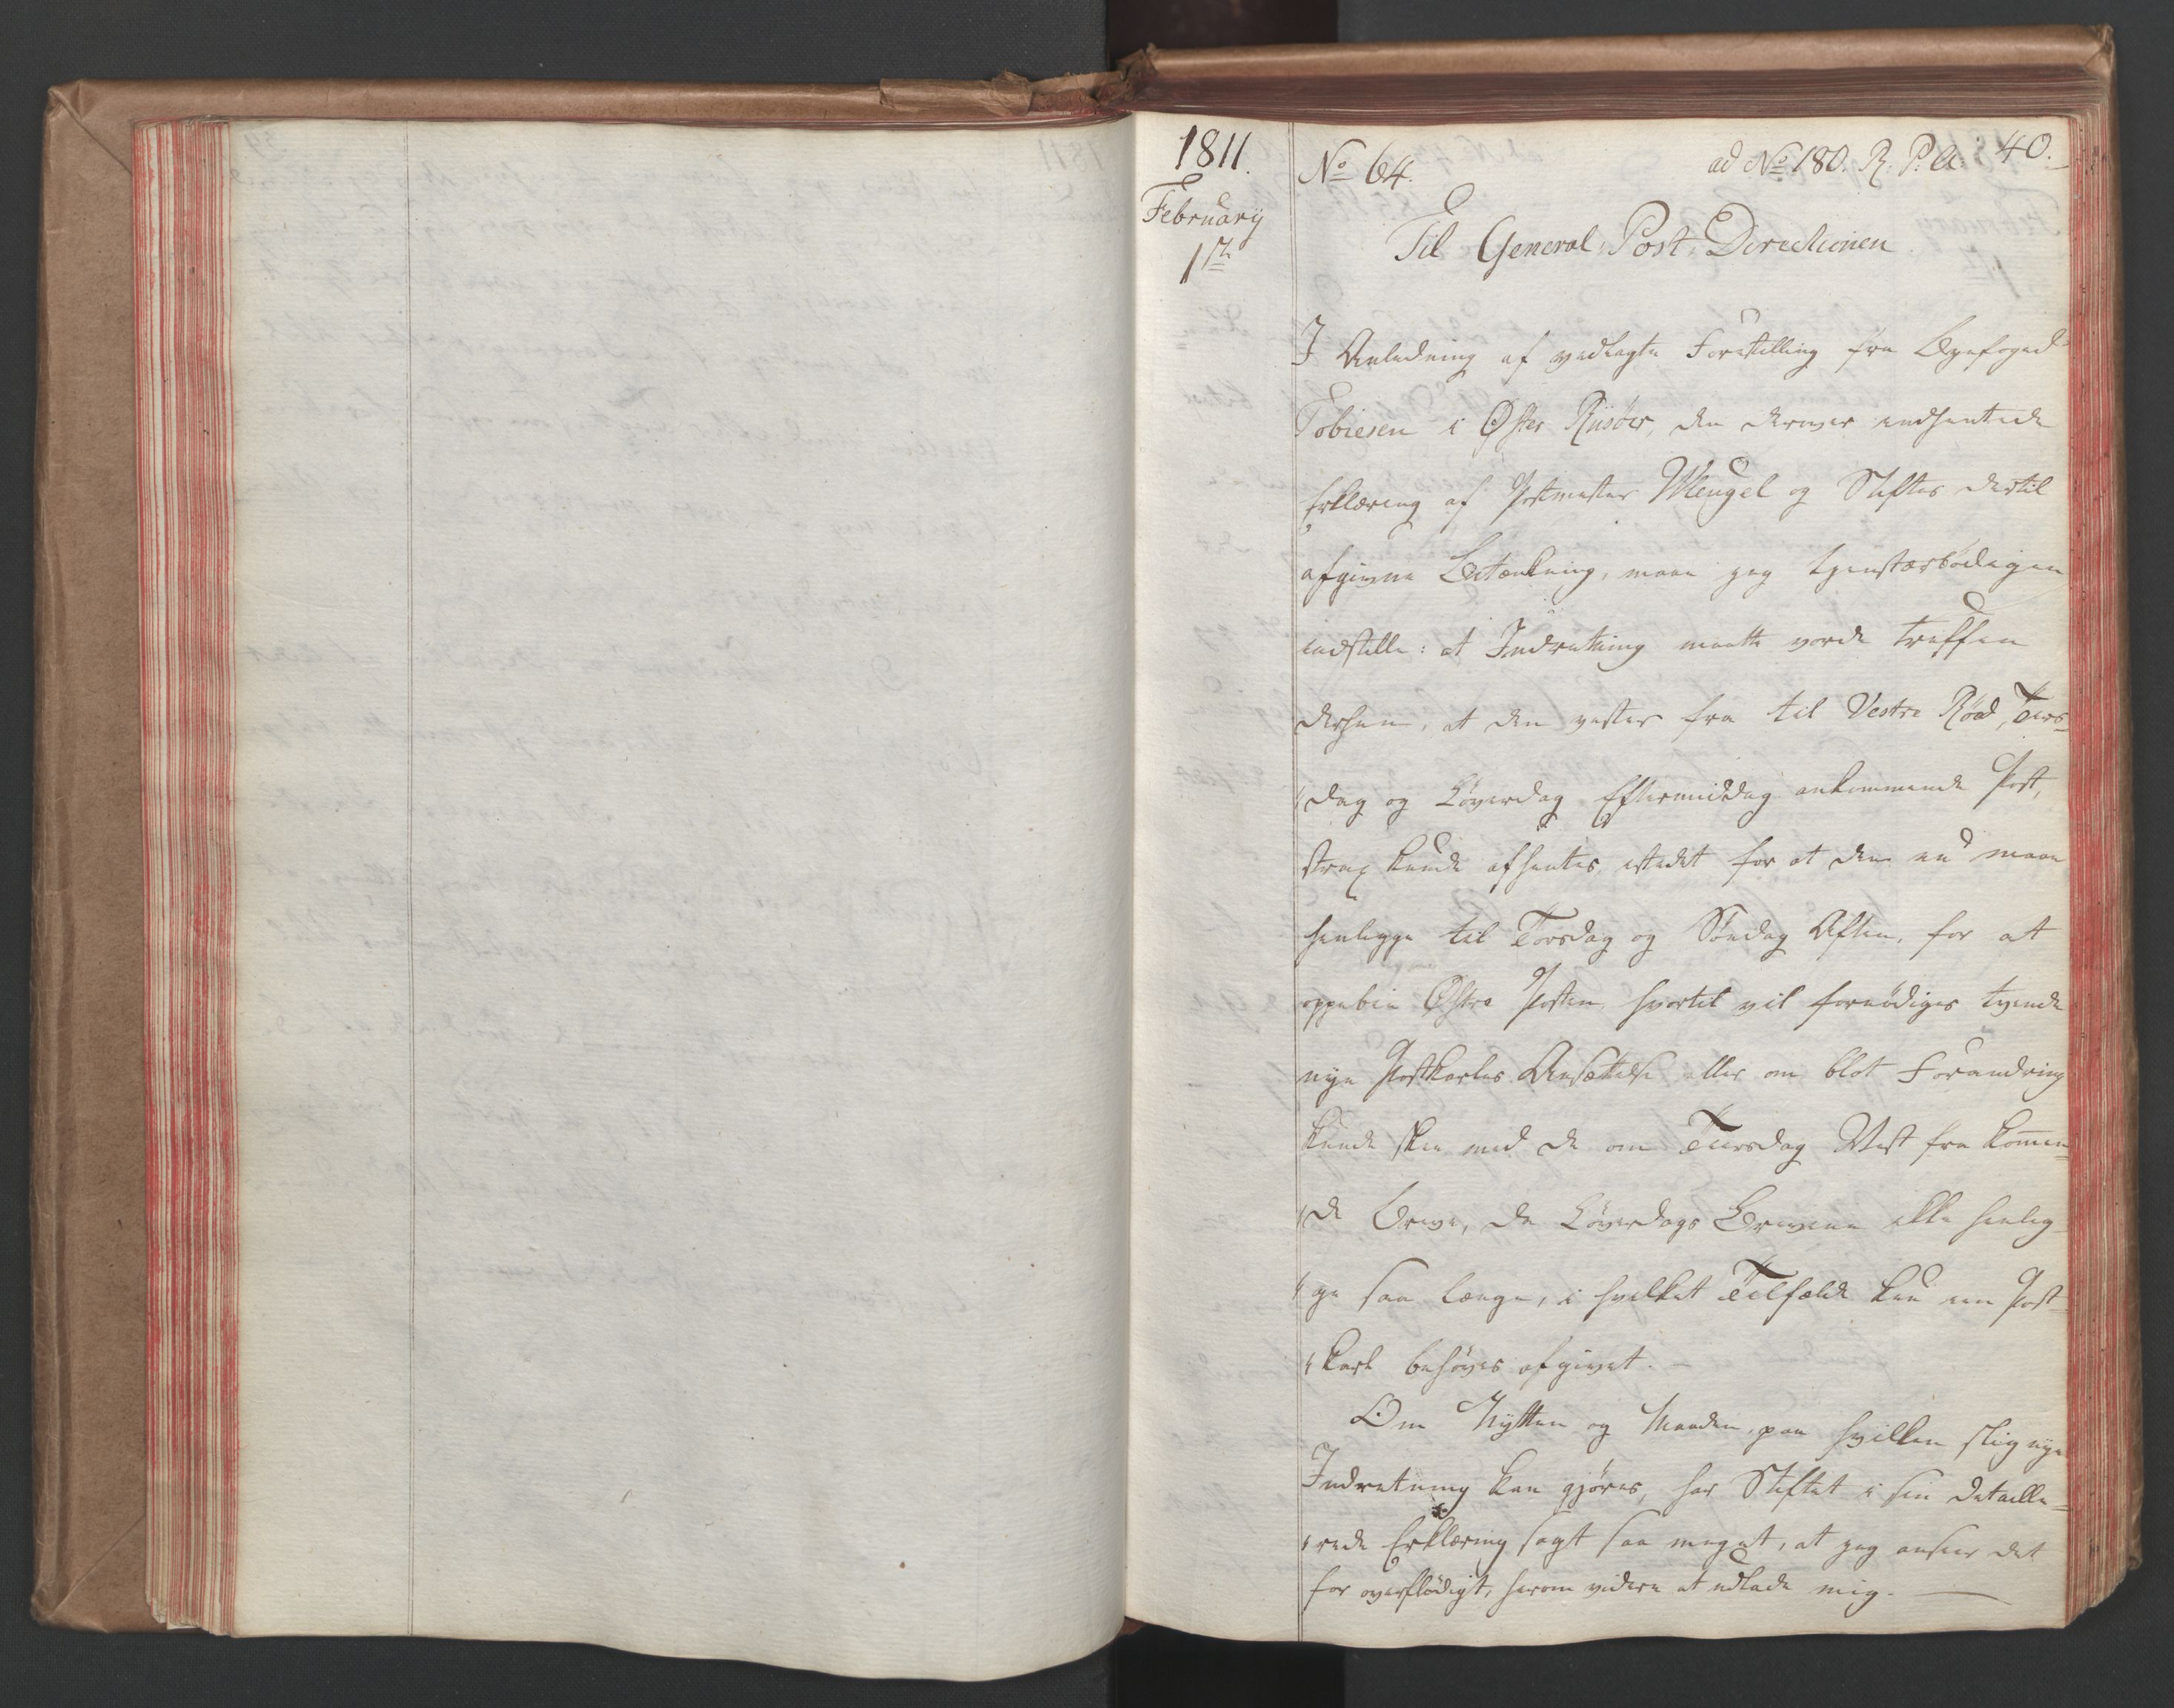 1811.
February
1ste
No 64.
ad No 180. R. P. A.
40.
Til General-Post-Directionen
I Anledning af vedlagte Forestilling fra Byefoged
Tobiesen i Øster Riisøer, den derover indhentede
Erklæring af Postmester Wengel og Stiftets dertil
afgivne Betænkning, maae jeg tjenstærbødigen
indstille: at Indretning maatte vorde truffen
derhen, at den vester fra til Vestre Røed, Tiirs-
"dag og Løverdag Eftermiddag ankommende Post,
strax kunde afhentes, istedet for at den nu maae
henligge til Torsdag og Søndag Aften, for at
oppebie Østre Posten, hvortil vil fornødiges tvende
nye Postkarles Ansættelse eller om blot Forandring
kunde skee med de om Tiirsdag Vest fra komen-
"de Breve, da Løverdags Brevene ikke henlig-
"ge saa længe, i hvilket Tilfælde kun een Post-
"karl behøves afgivet. -
Om Nytten og Maaden, paa hvilken slig nye
Indretning kan gjøres, har Stiftet i sin detaille-
"rede Erklæring sagt saa meget, at jeg anseer det
for overflødigt, herom videre at udlade mig. -